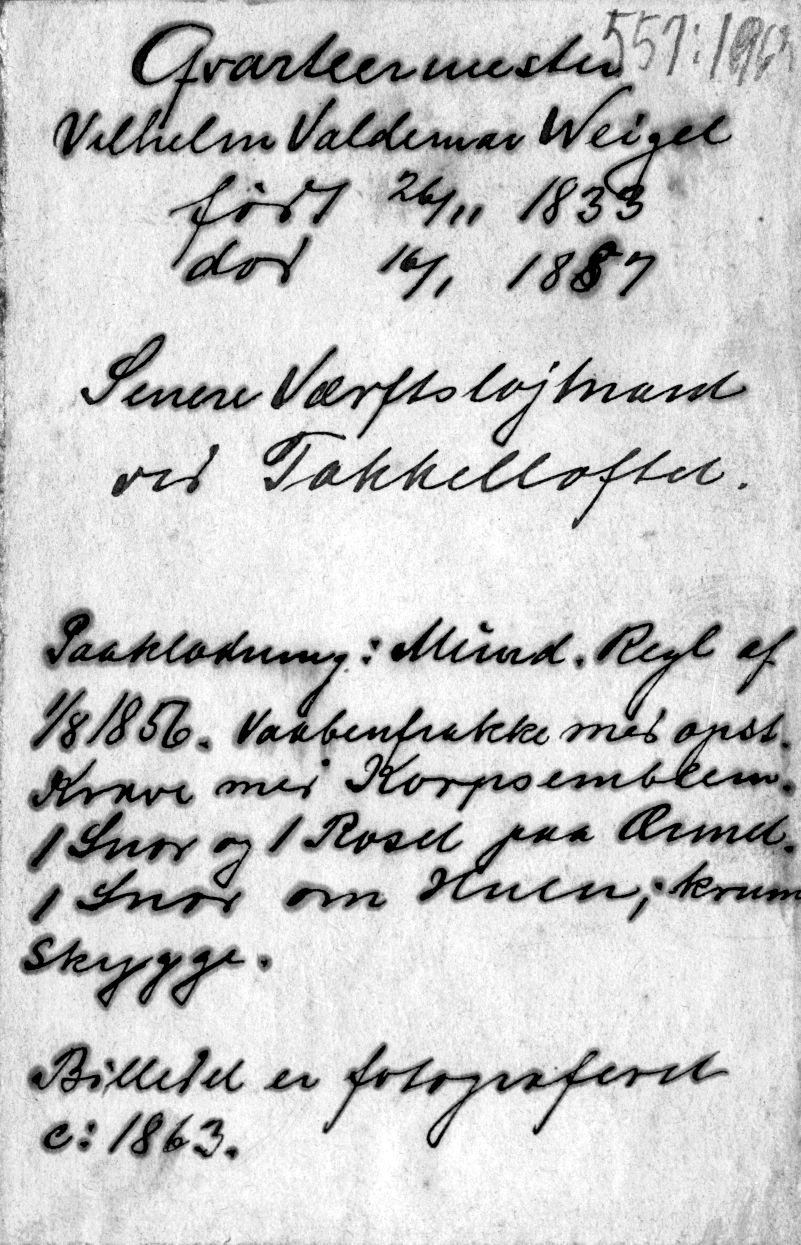 Qvarteermester 557:196
Vilhelm Valdemar Weigel
født 26/11 1833
død 16/1 1887
Senere Værftsløjtnand
ved Takkelloftet.
Paaklædning: Mund. Regl af
1/8 1856. Vaabenfrakke med opst.
Krave med Korpsemblem.
1 Snor og 1 Roset paa Ærmet.
1 Snor om Huen, krum
Skygge.
Billedet er fotograferet
c: 1863.